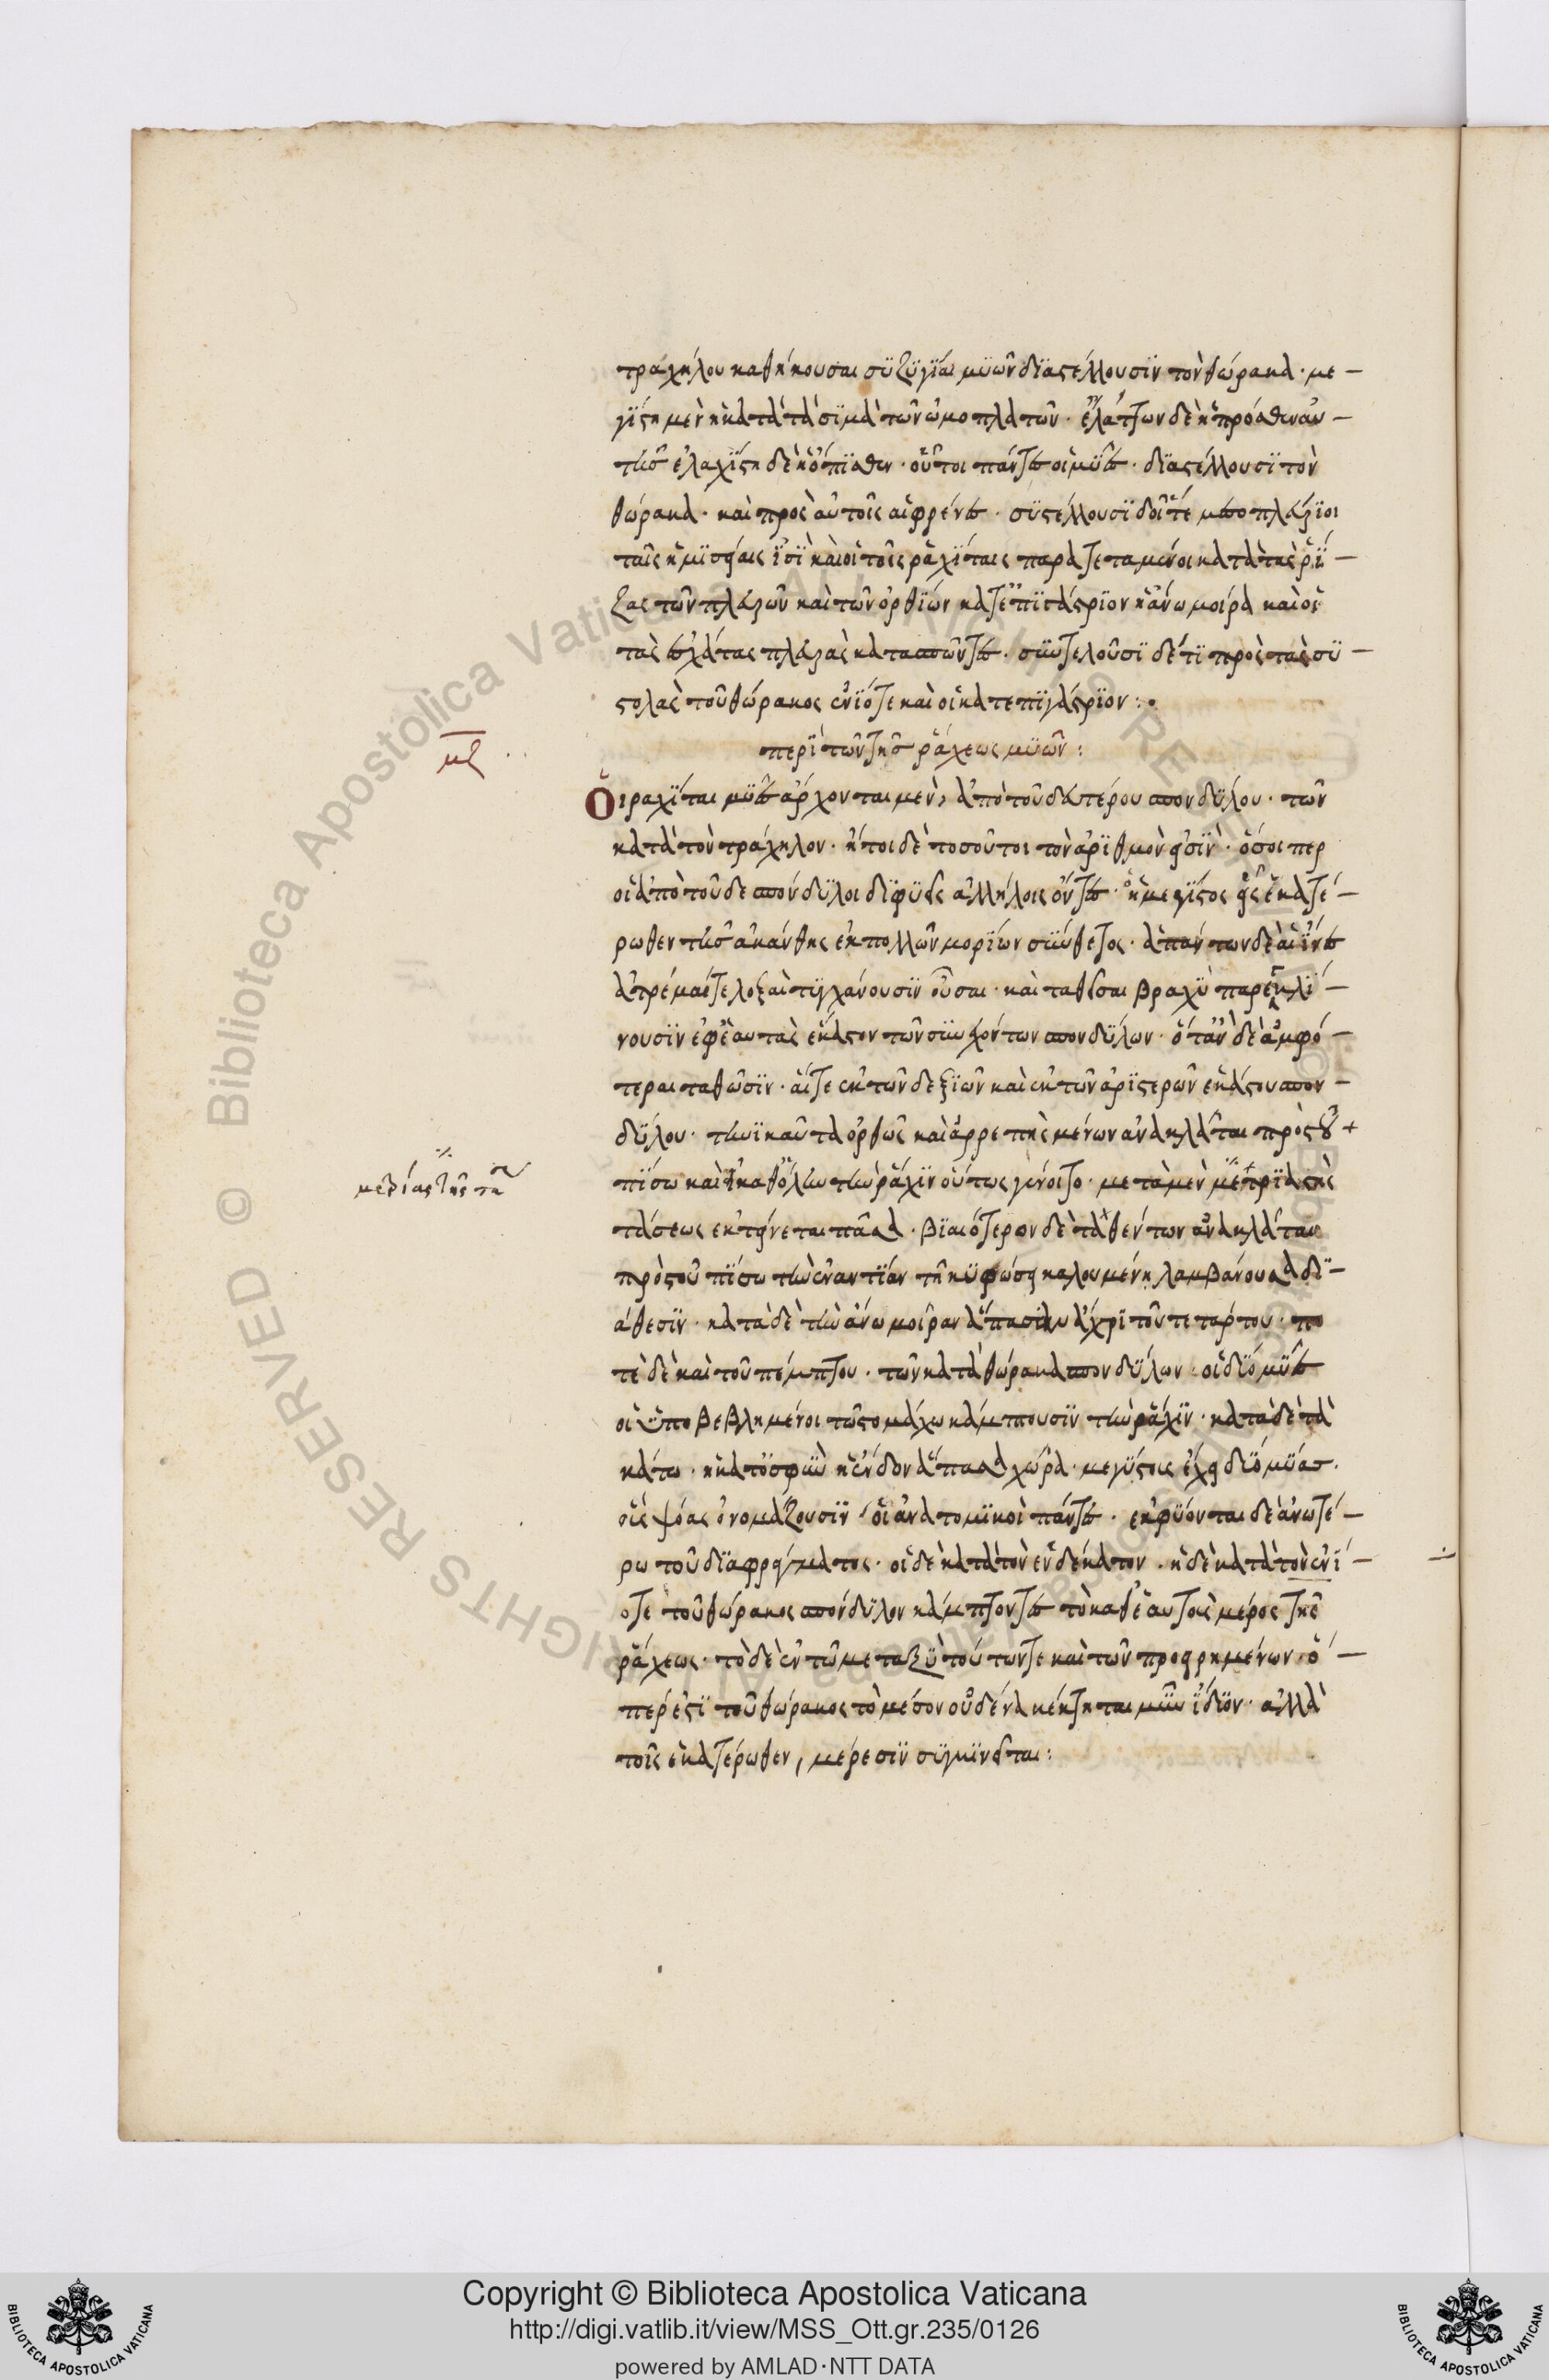 τραχήλου καθήκουσαι συζυγίαι μυῶν διαστέλλουσιν τὸν θώρακα· με –
γίστη μὲν ἡ κατὰ τὰ σιμὰ τῶν ὠμοπλατῶν· ἐλάττων δὲ ἡ πρόσθεν αὐ –
τῆς ἐλαχίστη δὲ ἡ ὄπισθεν· οὗτοι πάντες οἱ μῦες· διαστέλλουσι τὸν
θώρακα· καὶ πρὸς αὐτοῖς αἱ φρένες· συστέλλουσι δ' οἵ τε μεσοπλεύριοι
ταῖς ἡμισείαις ἰσὶ καὶ οἱ τοῖς ραχίταις παρατεταμένοι κατὰ τὰς ρί –
ζας τῶν πλευρῶν καὶ τῶν ὀρθίων κατ' ἐπιγάστριον ἡ ἄνω μοίρα καὶ οἱ
τὰς ἐσχάτας πλευρὰς κατασπῶντες· συντελοῦσι δέ τι πρὸς τὰς συ –
στολὰς τοῦ θώρακος ἐνίοτε καὶ οἱ κατ' επιγάστριον :·
περὶ τῶν τῆς ράχεως μυῶν :
μζ
Οἱ ραχίται μύες ἄρχονται μὲν, ἀπὸ τοῦ δευτέρου σπονδύλου· τῶν
κατὰ τὸν τράχηλον· ἤτοι δὲ τοσοῦτοι τὸν ἀριθμὸν εἰσὶν· ὅσοι περ
οἱ ἀπὸ τοῦδε σπόνδυλοι διφυεῖς ἀλλήλοις ὄντες· ἢ μέγιστος εἷς ἑκατέ –
ρωθεν τῆς ἀκάνθης ἐκ πολλῶν μορίων σύνθετος· ἁπάντων δὲ αἱ ἶνες
ἀτρέμα τε λοξαὶ τυγχάνουσιν οὖσαι· καὶ ταθεῖσαι βραχὺ παρεγκλί –
νουσιν ἐφ' ἑαυτὰς ἕκαστον τῶν συνεχόντων σπονδύλων· ὅταν δὲ ἀμφό –
τεραι ταθῶσιν· αἵ τε ἐκ τῶν δεξιῶν καὶ ἐκ τῶν ἀριστερῶν ἑκάστου σπον –
δύλου· τηνικαῦτα ὀρθῶς καὶ ἀρρεπῶς μένων ἀνακλᾶται πρὸς οὐ
πίσω καὶ καθ' ὅλην τὴν ράχιν οὕτως γένοιτο· μετὰ μὲν μετρίας τῆς
μετρίας τῆς τά
τάσεως ἐκτείνεται πᾶσα· βιαιότερον δὲ ταθέντων ἀνακλᾶται
πρὸς οὐπίσω τὴν ἐναντίαν τῇ κυφώσει καλουμένῃ λαμβάνουσα δι –
άθεσιν· κατὰ δὲ τὴν ἄνω μοῖραν ἅπασαν ἄχρι τοῦ τετάρτου· πο
τὲ δὲ καὶ τοῦ πέμπτου· τῶν κατὰ θώρακα σπονδύλων· οἱ δύο μῦες
οἱ ὑποβεβλημένοι τῷ στομάχῳ κάμπτουσιν τὴν ράχιν· κατὰ δὲ τὰ
κάτω· ἡ κατ' ὀσφὺν ἡ ἔνδον ἅπασα χώρα· μεγίστους ἔχει δύο μύας·
οἷς ψόας ὀνομάζουσιν οἱ ἀνατομικοὶ πάντες· ἐκφύονται δὲ ἀνωτέ –
ρω τοῦ διαφράγματος· οἱ δὲ κατὰ τὸν ἑνδέκατον· ἢ δὲ κατὰ τὸν ἐνί –
οτε τοῦ θώρακος σπόνδυλον κάμπτοντες τὸ καθ' ἑαυτοὺς μέρος τῆς
ράχεως· τὸ δὲ ἐν τῷ μεταξὺ τούτων τε καὶ τῶν προειρημένων· ὅ –
πέρ ἐστι τοῦ θώρακος τὸ μέσον οὐδένα κέκτηται μῦν ἴδιον· ἀλλὰ
τοῖς ἑκατέρωθεν, μέρεσιν συγκινεῖται :
Copyright © Biblioteca Apostolica Vaticana
http://digi.vatlib.it/view/MSS_Ott.gr.235/0126
powered by AMLAD·NTT DATA